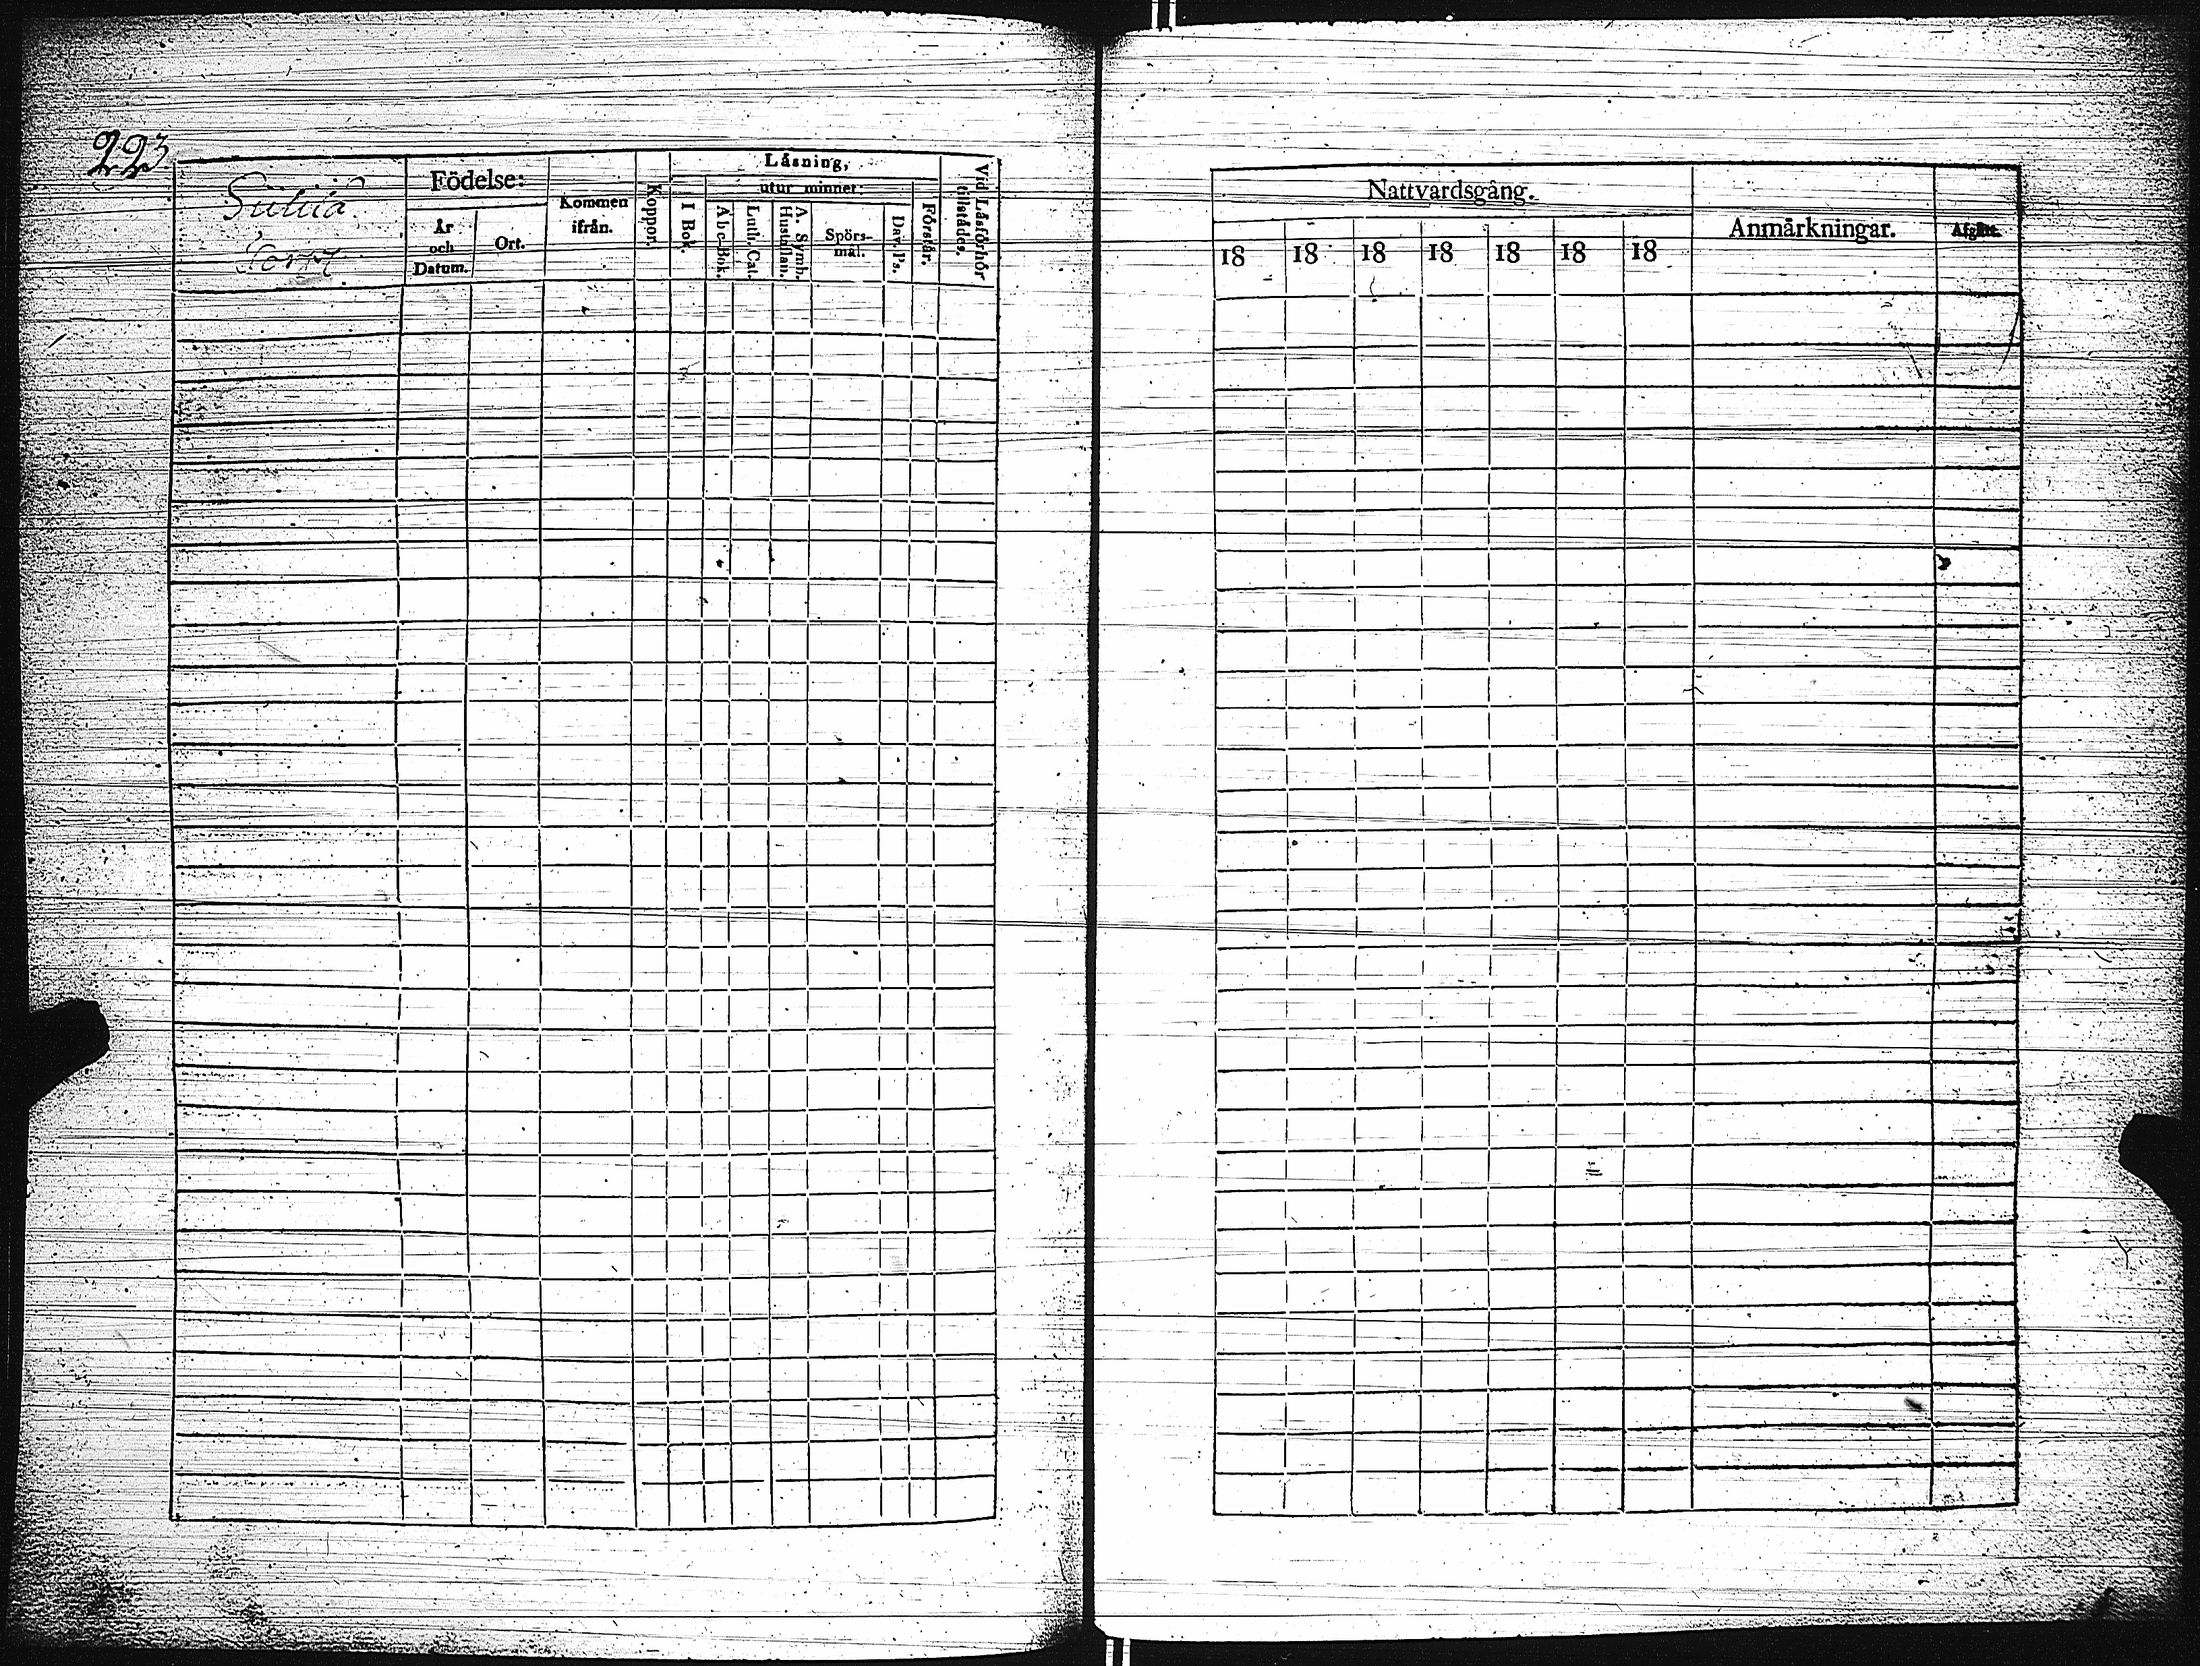 223
Torp
Födelse:
År
och
Datum.
Ort.
Kommen
ifrån.
Koppor.
Låsning,
utur minnet:
I Bok.
Abc-Bok.
Luth. Cat.
A. Symb.
Hustaflan.
Spörs-
mål.
Dav. Ps.
Förstår.
Vid Låsförhör
tillstådes.
Nattvardsgång.
18 18 18 18 18 18 18
Anmärkningar.
Afgått.